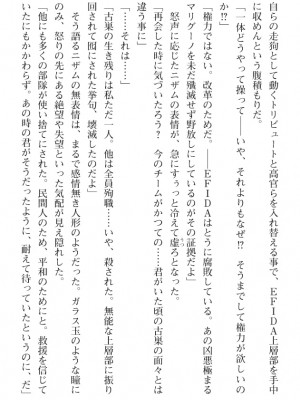 自らの走狗として動くトリビュートと高官らを入れ替える事で、EFIDA上層部を手中
に収めんという腹積もりだ。
「一体どうやって操って――いや、それよりもなぜ!? そうまでして権力が欲しいの
か!?」
「権力ではない、改革のためだ。――EFIDAはとうに腐敗している。あの凶悪極まる
マリグーノを未だ殲滅せず野放しにしているのがその証拠だよ」
怒声に応じたニザムの表情が、急にすぅっと冷えて虚ろとなった。
「再会した時に気づいたろう? 今のチームがかつての……君がいた頃の古巣の面々とは
違う事に」
「……それは……」
「古巣の生き残りは私ただ一人。他は全員殉職……いや、殺された。無能な上層部に振り
回されて囮にされた挙句、壊滅したのだよ」
そう語るニザムの無表情は、まるで感情無き人形のようだった。ガラス玉のような瞳に
のみ、怒りの奥にある絶望や失望といった気配が見え隠れした。
「他にも多くの部隊が使い捨てにされた。民間人のため、平和のためにと。救援を信じて
いたにもかかわらず。あの時の君がそうだったように、『耐えて待っていたというのに、だ」